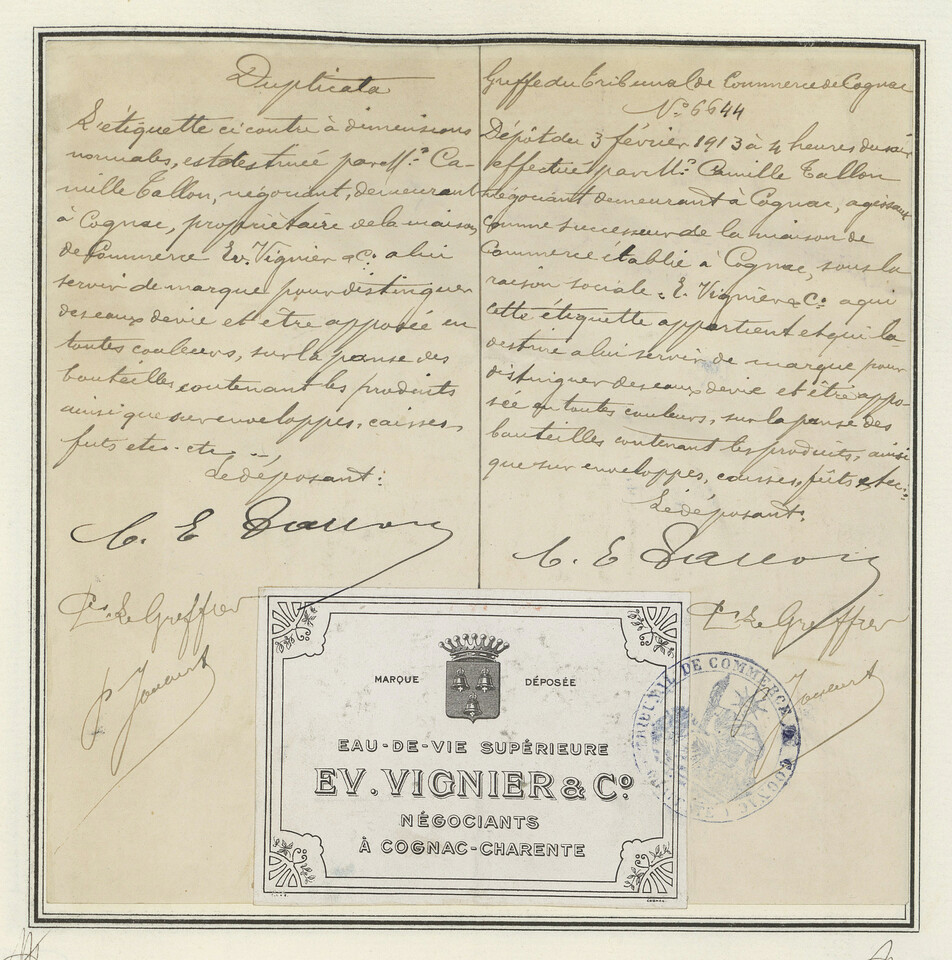 Duplicata
L'étiquette ci contre à dimensions
normales, est destinée par M.r Ca-
mille Tallon, négociant, demeurant
à Cognac, propriétaire de la maison
de Commerce Ev. Vignier & C.o à lui
servir de marque pour distinguer
des eaux de vie et être apposée en
toutes couleurs, sur la panse des
bouteilles contenant les produits
ainsi que sur enveloppes, caisses,
futs etc. etc
Le déposant:
C. E Tallon
P.r Le Greffier
Greffe du Tribunal de Commerce de Cognac
N.o 6644
Dépôt du 3 février 1913 à 4 heures du soir
effectué par M.r Camille Tallon
négociant demeurant à Cognac, agissant
comme successeur de la maison de
Commerce établie à Cognac, sous la
raison sociale E. Vignier & C.o à qui
cette étiquette appartient et qui la
destine à lui servir de marque pour
distinguer des eaux de vie et être appo-
sée en toutes couleurs, sur la panse des
bouteilles contenant les produits, ainsi
que sur enveloppes, caisses, fûts etc.
Le déposant.
C. E Tallon
P.r Le Greffier
MARQUE DÉPOSÉE
EAU-DE-VIE SUPÉRIEURE
EV. VIGNIER & Cº
NÉGOCIANTS
À COGNAC-CHARENTE
TRIBUNAL DE COMMERCE DE COGNAC